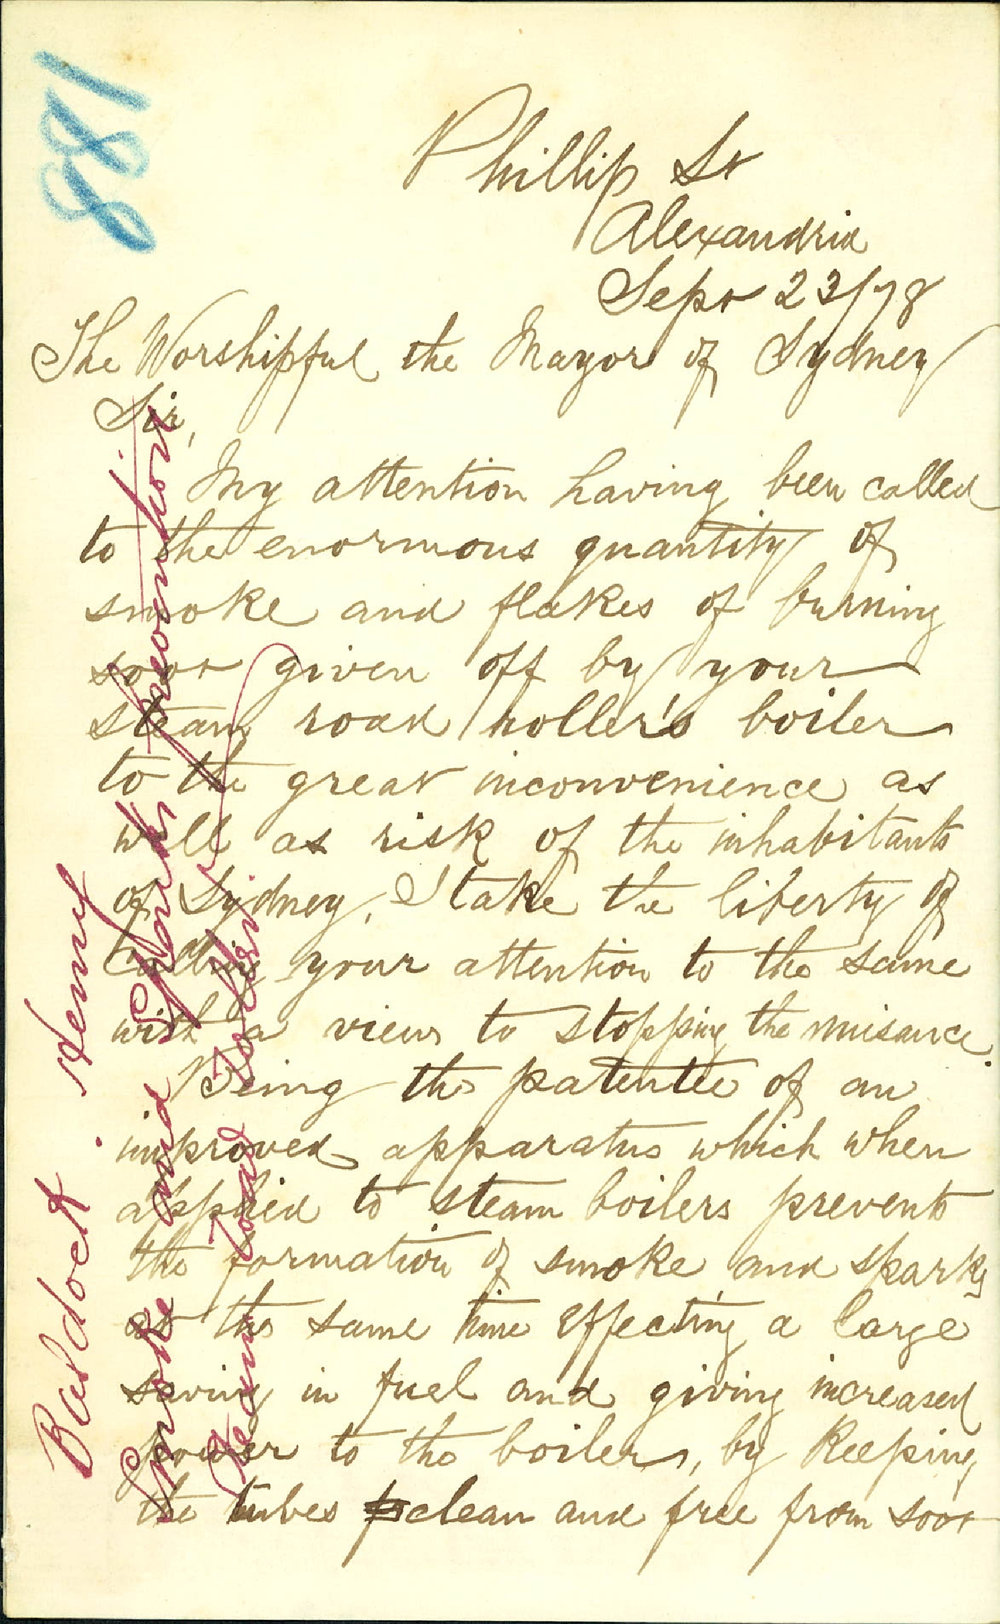 188
Phillip St
Alexandria
Sept 23/78
The Worshipful the Mayor of Sydney
Sir,
My attention having been called
to the enormous quantity of
smoke and flakes of burning
soot given off by your
steam road roller's boiler
to the great inconvenience as
well as risk of the inhabitants
of Sydney, I take the liberty of
calling your attention to the same
with a view to stopping the nuisance.
Being the patentee of an
improved apparatus which when
applied to steam boilers prevents
the formation of smoke and sparks
at the same time effecting a large
saving in fuel and giving increased
power to the boilers, by keeping
the tubes clean and free from soot
Baldock. Henry
Smoke and Spark prevention
Steam road roller